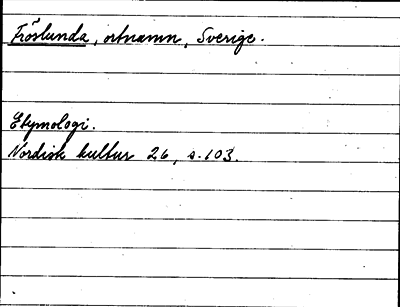 Fröslunda, ortnamn, Sverige.
Etymologi.
Nordisk kultur 26, s. 103.